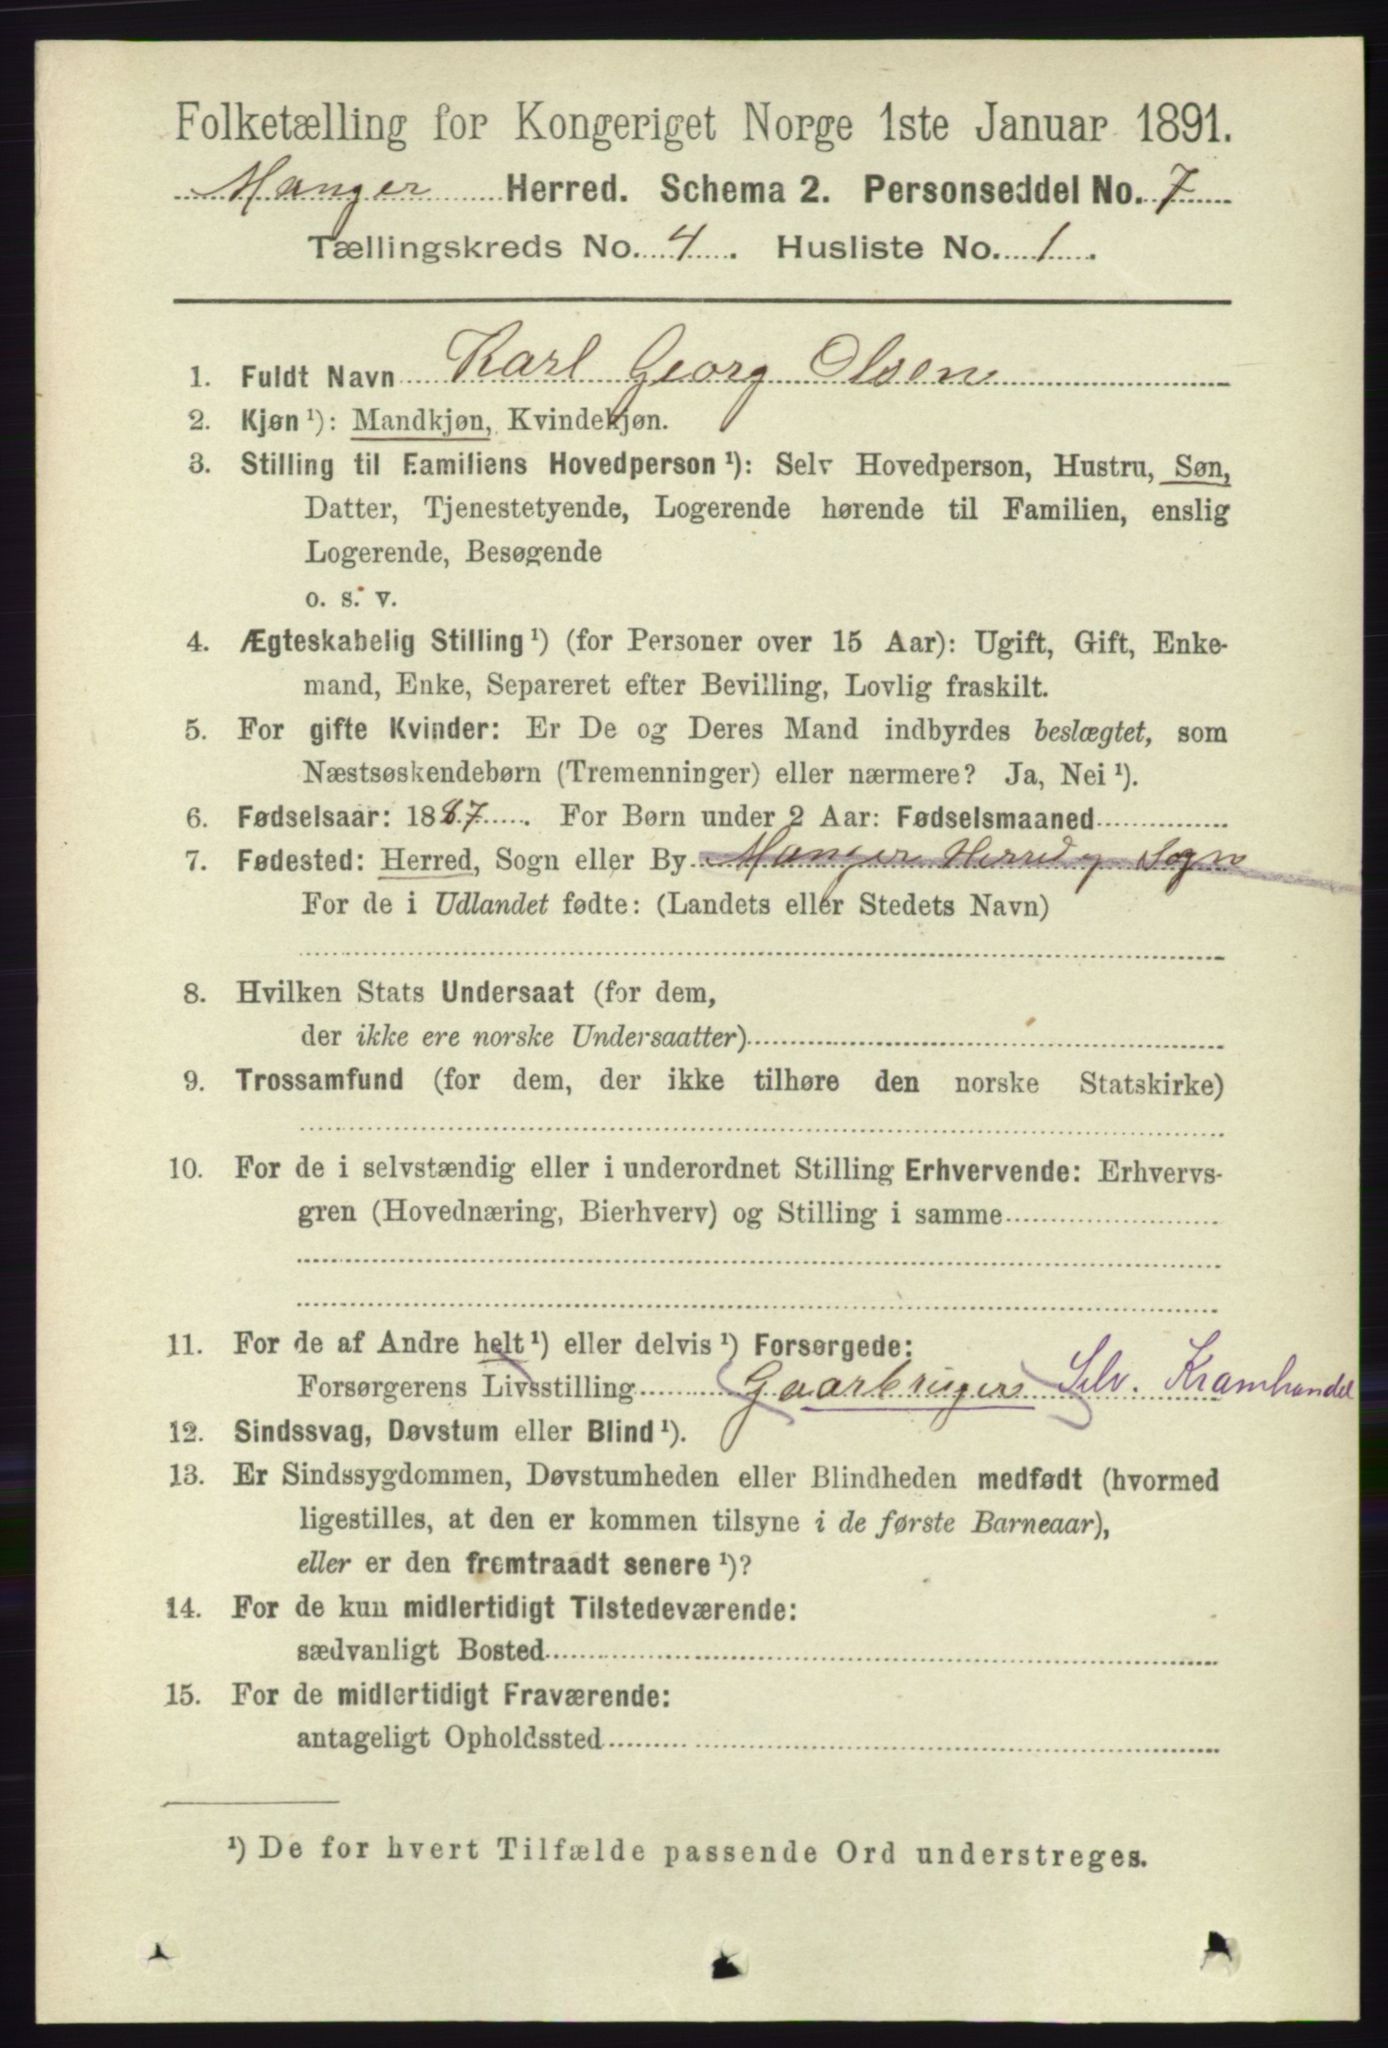 Folketælling for Kongeriget Norge 1ste Januar 1891.
Manger Herred. Schema 2. Personseddel No. 7
Tællingskreds No. 4. Husliste No. 1.
1. Fuldt Navn Karl Georg Olsen
2. Kjøn ¹): Mandkjøn, Kvindekjøn.
3. Stilling til Familiens Hovedperson ¹): Selv Hovedperson, Hustru, Søn,
Datter, Tjenestetyende, Logerende hørende til Familien, enslig
Logerende, Besøgende
o. s. v.
4. Ægteskabelig Stilling ¹) (for Personer over 15 Aar): Ugift, Gift, Enke-
mand, Enke, Separeret efter Bevilling, Lovlig fraskilt.
5. For gifte Kvinder: Er De og Deres Mand indbyrdes beslægtet, som
Næstsøskendebørn (Tremenninger) eller nærmere? Ja, Nei ¹).
6. Fødselsaar: 1887. For Børn under 2 Aar: Fødselsmaaned
7. Fødested: Herred, Sogn eller By Manger Herred og Sogn
For de i Udlandet fødte: (Landets eller Stedets Navn)
8. Hvilken Stats Undersaat (for dem,
der ikke ere norske Undersaatter)
9. Trossamfund (for dem, der ikke tilhøre den norske Statskirke)
10. For de i selvstændig eller i underordnet Stilling Erhvervende: Erhvervs-
gren (Hovednæring, Bierhverv) og Stilling i samme
11. For de af Andre helt ¹) eller delvis ¹) Forsørgede:
Forsørgerens Livsstilling Gaarbruger Selv. Kramhandel
12. Sindssvag, Døvstum eller Blind ¹).
13. Er Sindssygdommen, Døvstumheden eller Blindheden medfødt (hvormed
ligestilles, at den er kommen tilsyne i de første Barneaar),
eller er den fremtraadt senere ¹)?
14. For de kun midlertidigt Tilstedeværende:
sædvanligt Bosted
15. For de midlertidigt Fraværende:
antageligt Opholdssted
¹) De for hvert Tilfælde passende Ord understreges.